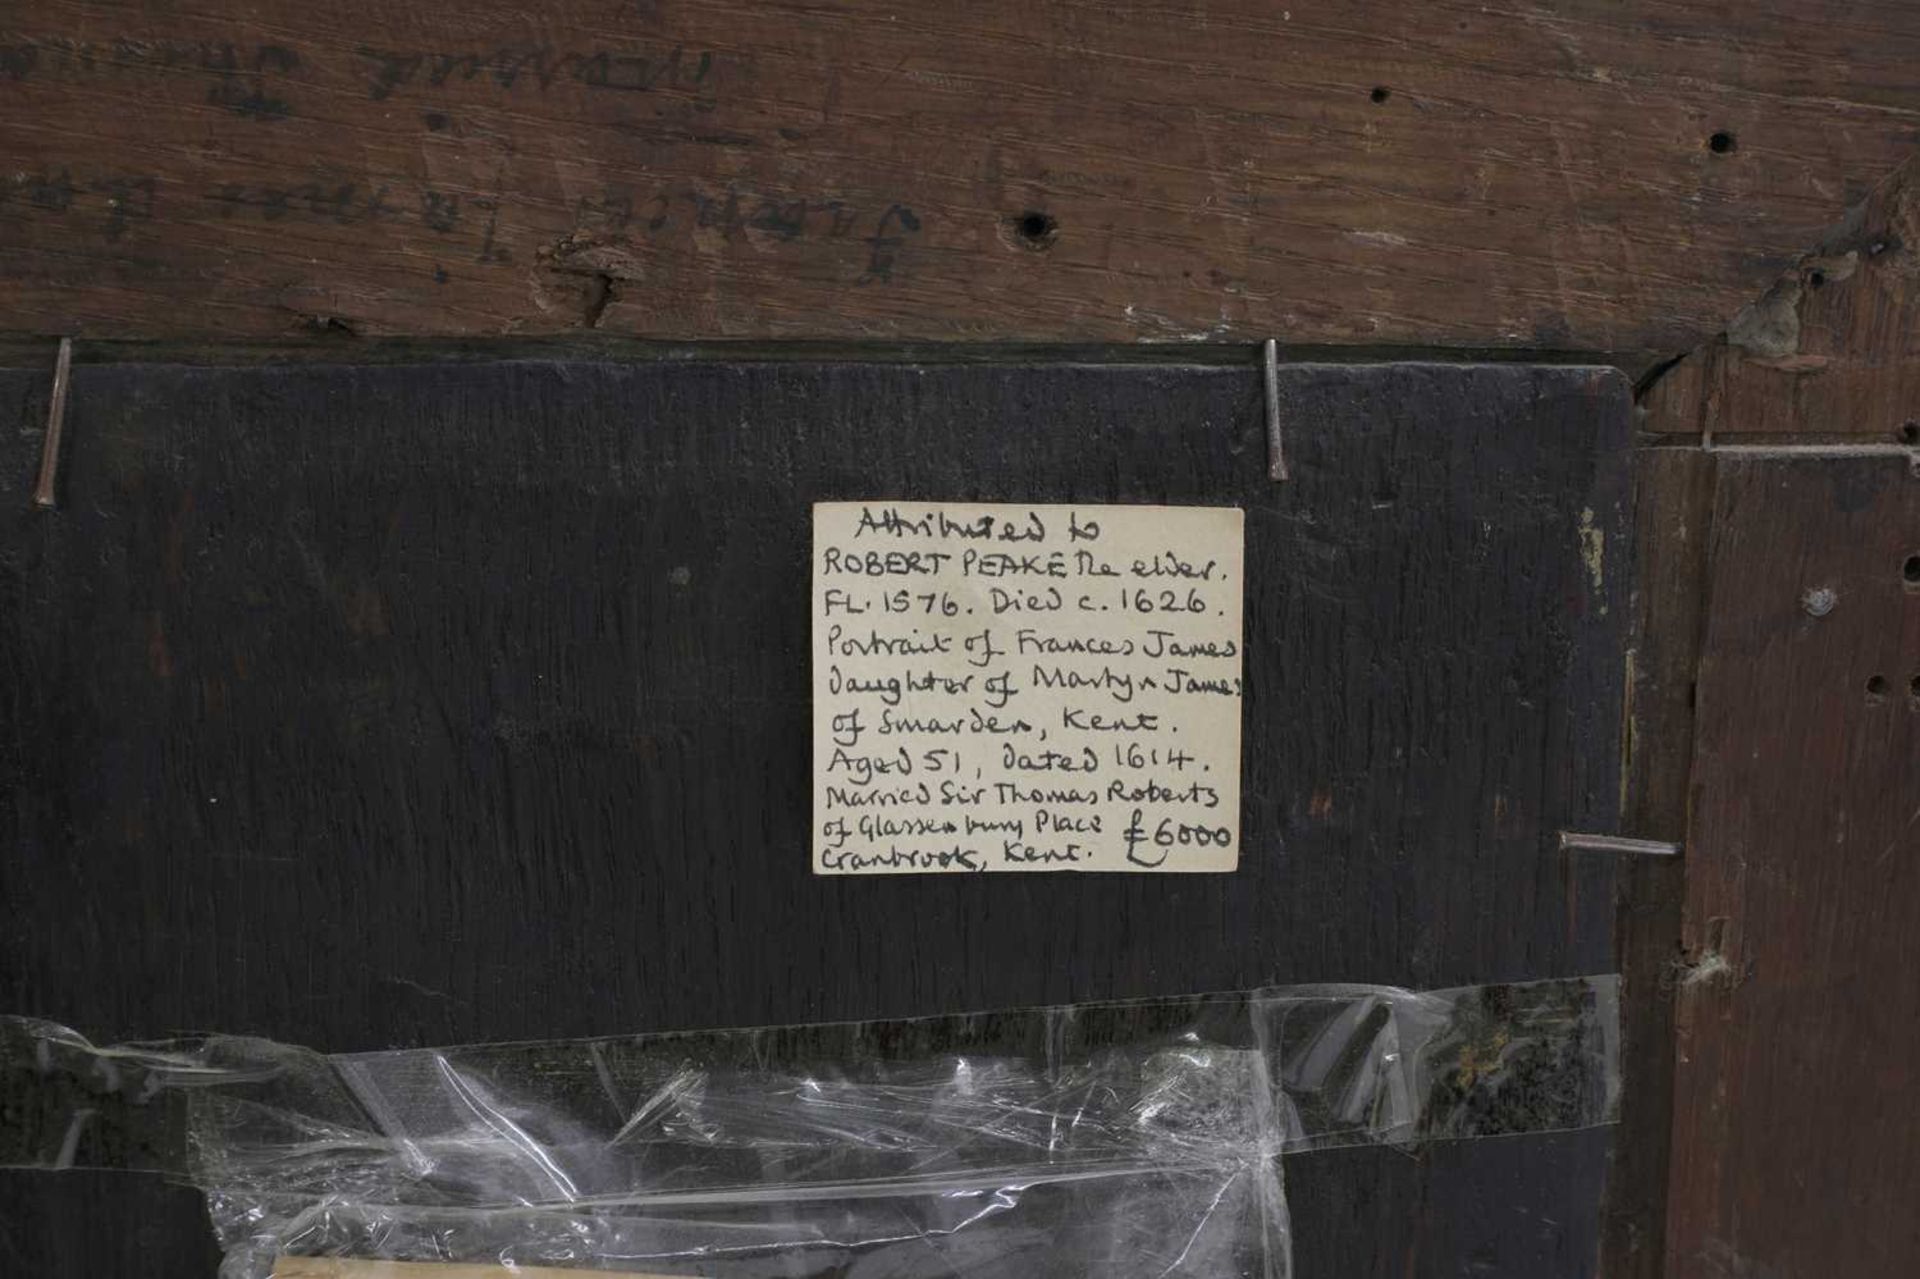 married Thoma
Frances James da
Attributed to
ROBERT PEAKE The elder.
FL. 1576. Died c. 1626.
Portrait of Frances James
daughter of Martyn James
of Smarden, Kent.
Aged 51, dated 1614.
Married Sir Thomas Roberts
of Glassenbury Place £6000
Cranbrook, Kent.